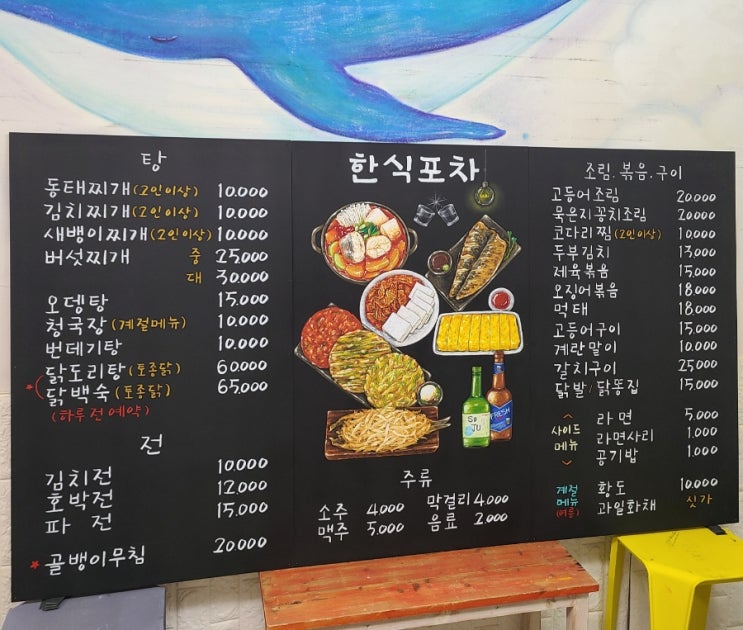 탕
동태찌개 (2인이상) 10.000
김치찌개 (2인이상) 10.000
새뱅이찌개 (2인이상) 10.000
버섯찌개 중 25.000
대 30.000
오뎅탕 15.000
청국장 (계절메뉴) 10.000
번데기탕 10.000
닭도리탕 (토종닭) 60.000
*닭백숙 (토종닭) 65.000
(하루 전 예약)
전
김치전 10.000
호박전 12.000
파 전 15.000
*골뱅이무침 20.000
한식포차
So
JU
FRESH
주류
소주 4.000 막걸리 4.000
맥주 5.000 음료 2.000
조림. 볶음. 구이
고등어조림 20.000
묵은지꽁치조림 20.000
코다리찜 (2인이상) 10.000
두부김치 13.000
제육볶음 15.000
오징어볶음 18.000
먹태 18.000
고등어구이 15.000
계란말이 10.000
갈치구이 25.000
닭발/닭똥집 15.000
사이드
메뉴
라면 5.000
라면사리 1.000
공기밥 1.000
계절
메뉴
(여름)
황도 10.000
과일화채 싯가